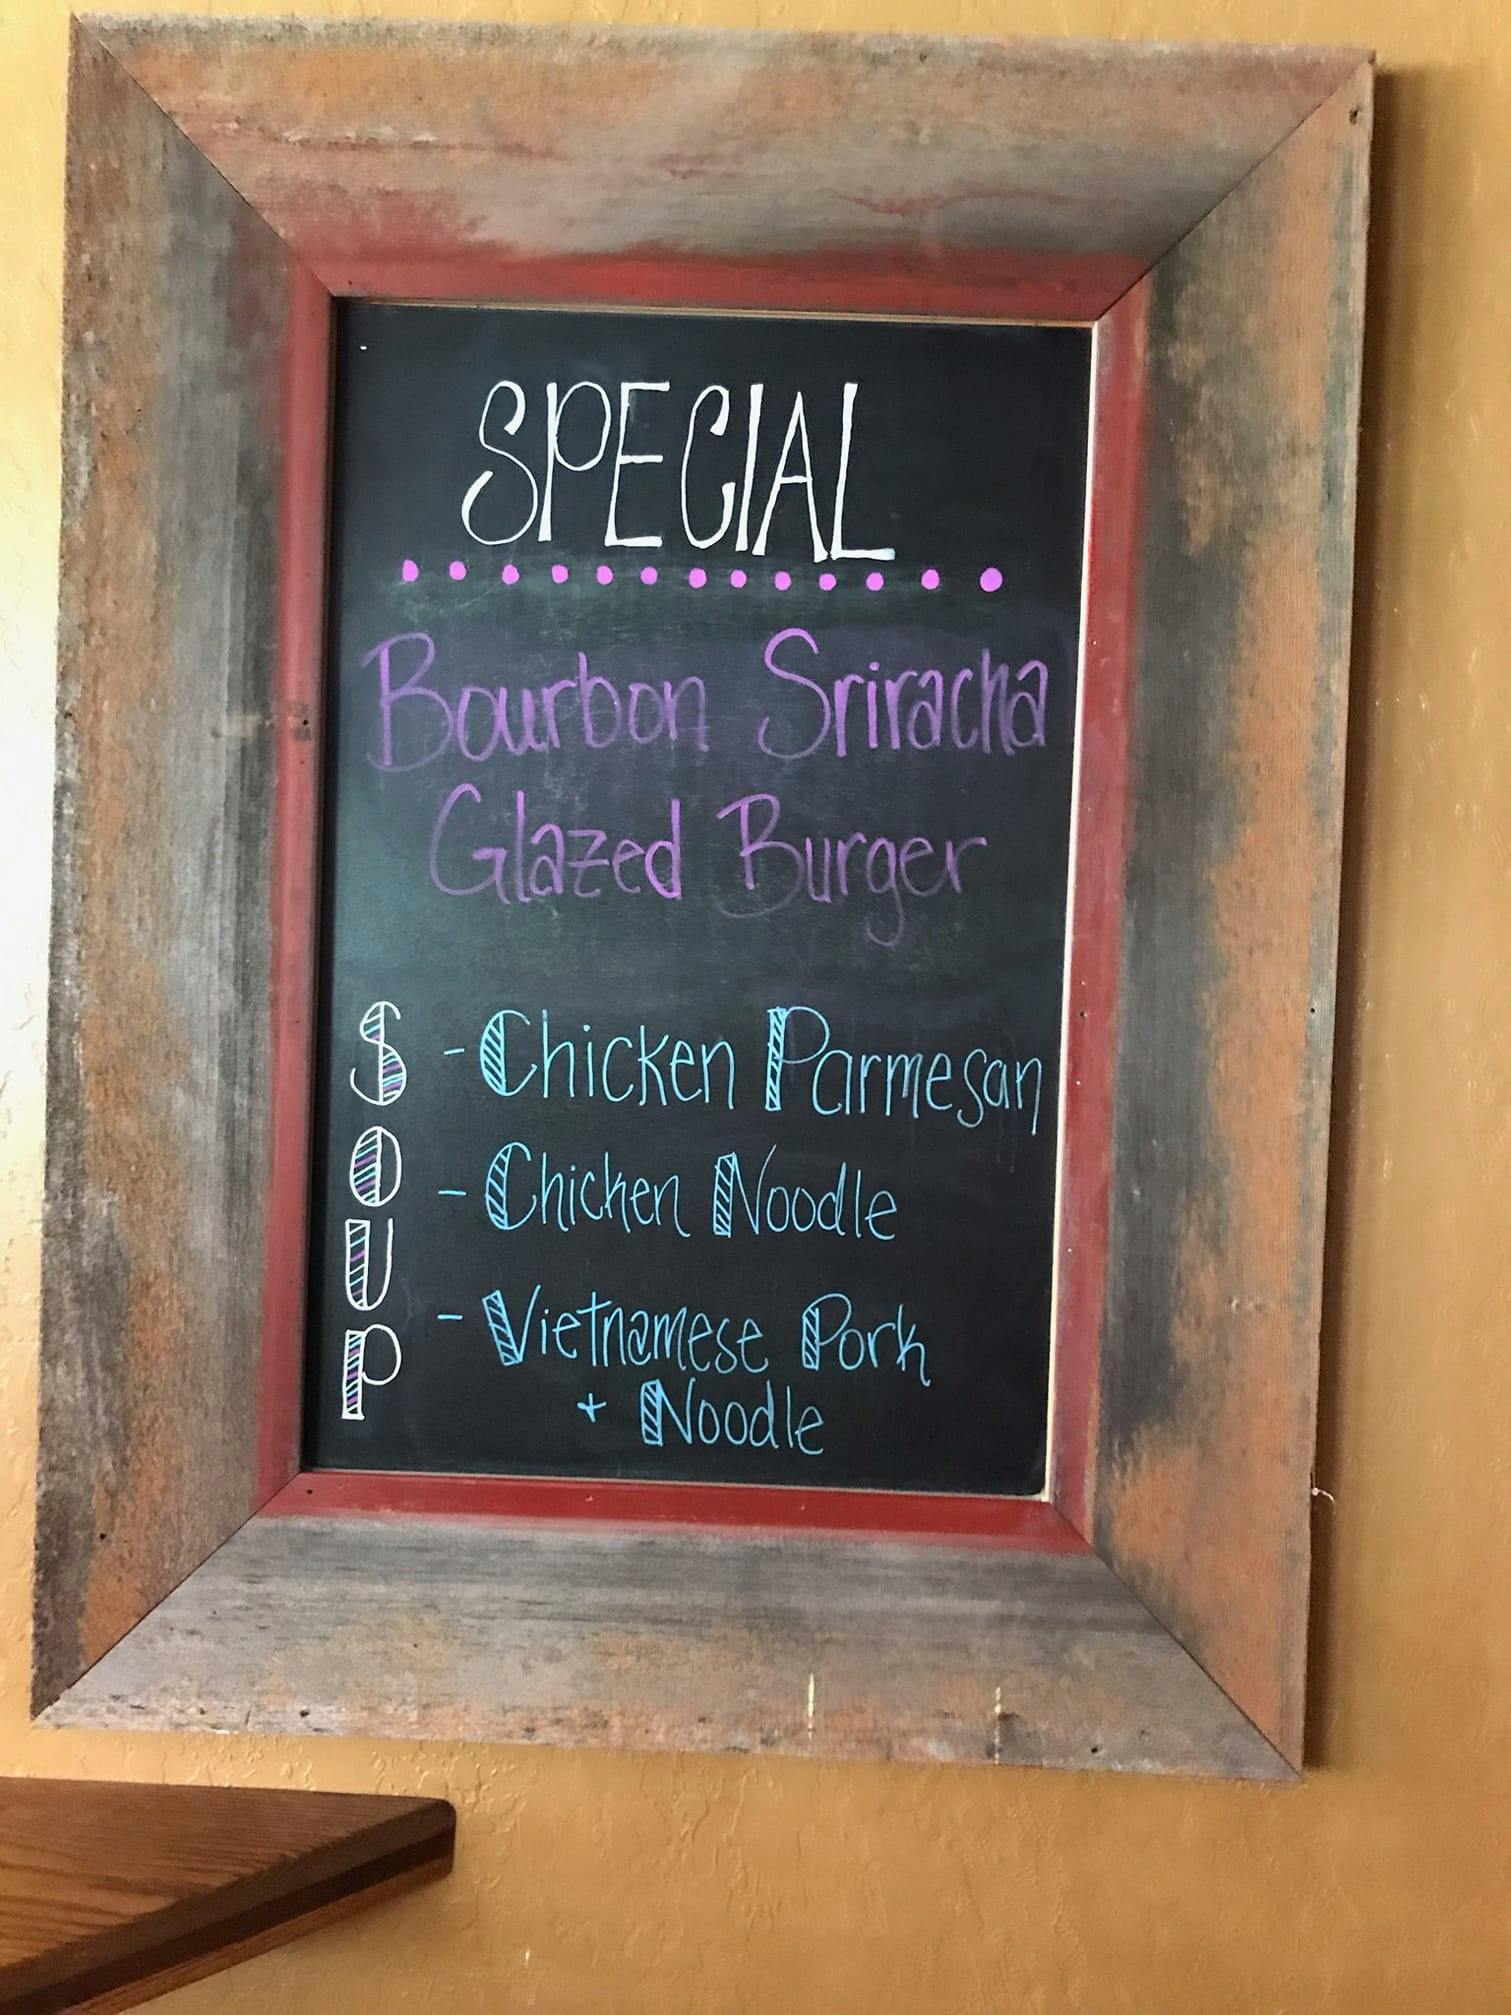 SPECIAL
Bourbon Sriracha
Glazed Burger
SOUP
- Chicken Parmesan
- Chicken Noodle
- Vietnamese Pork
+ Noodle